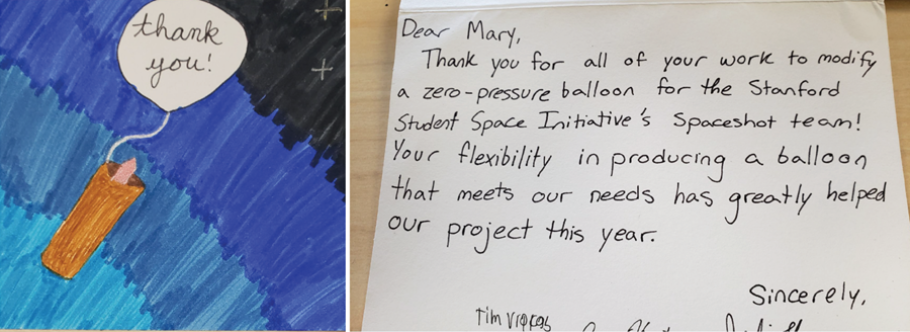 thank
you!
Dear Mary,
Thank you for all of your work to modify
a zero-pressure balloon for the Stanford
Student Space Initiative's Spaceshot team!
Your flexibility in producing a balloon
that meets our needs has greatly helped
our project this year.
Sincerely,
Tim